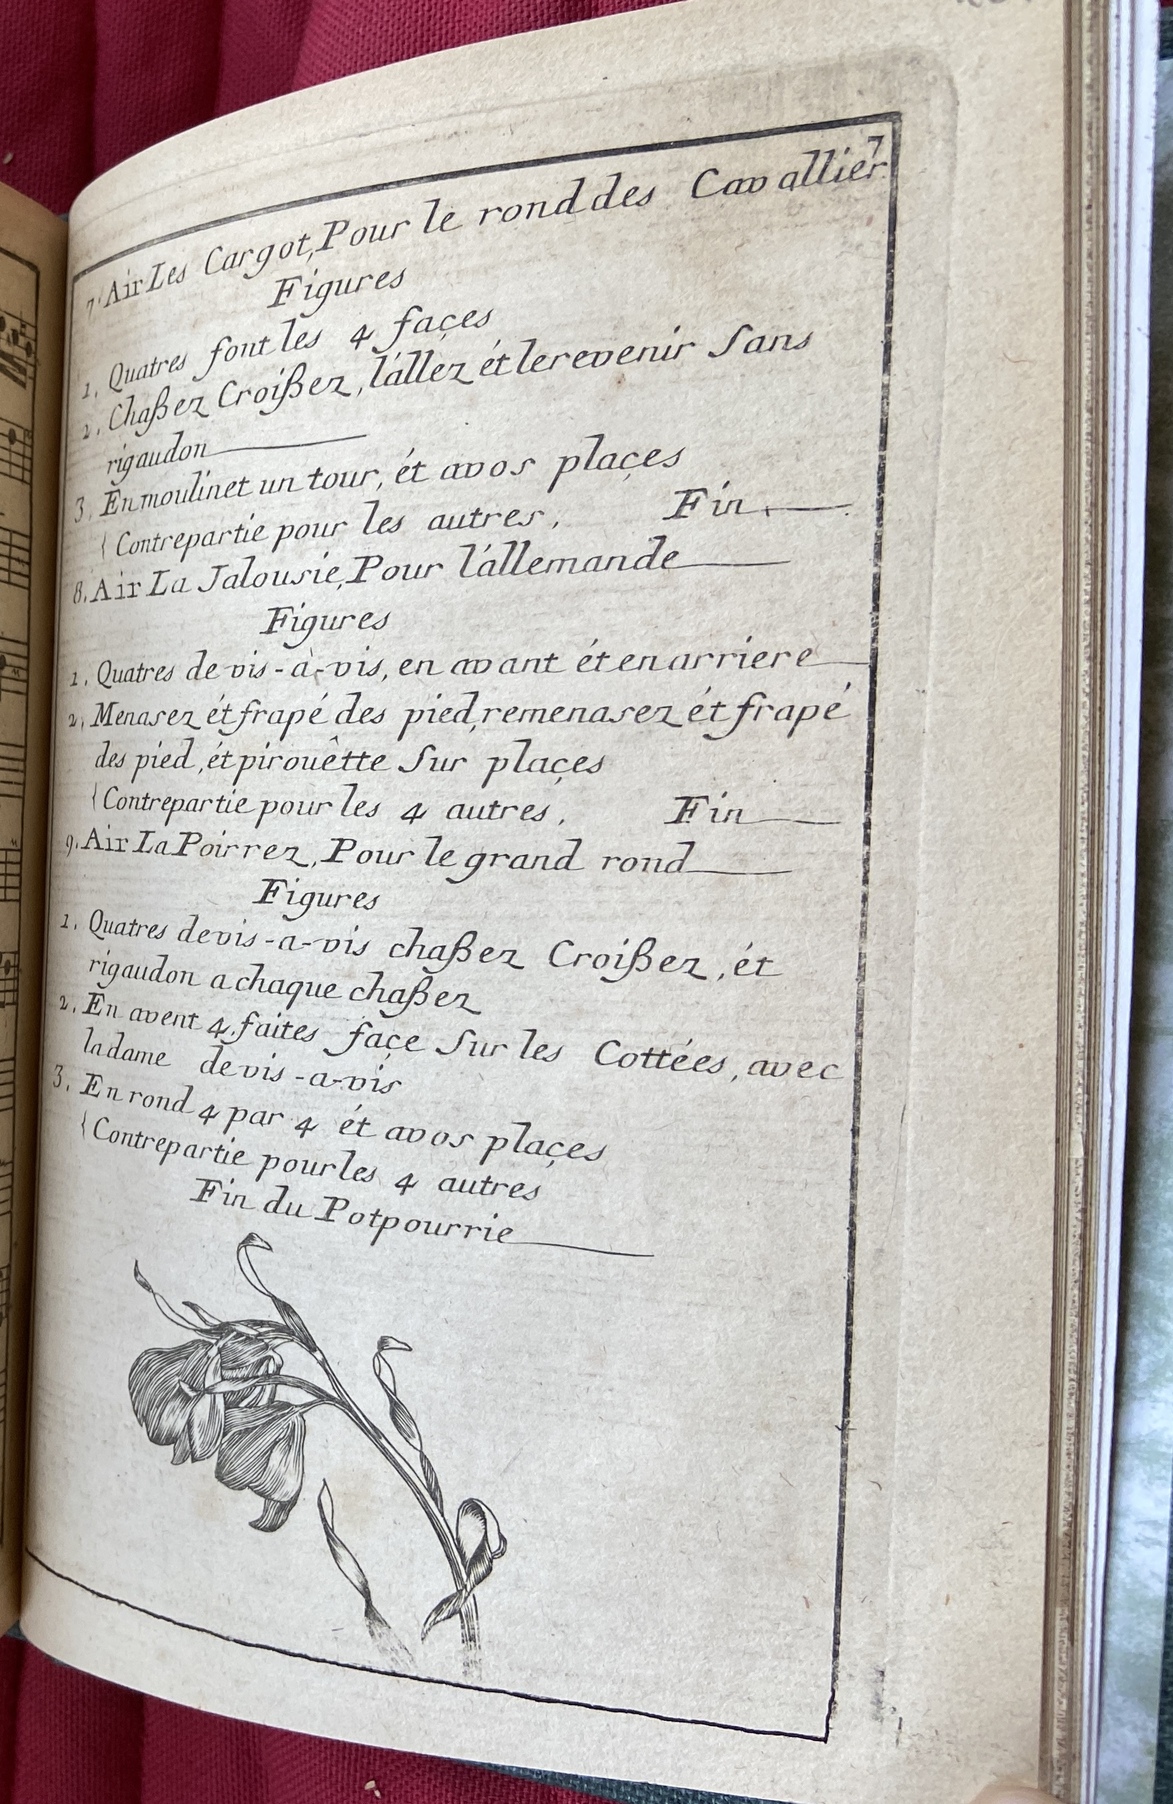 7
7. Air Les Cargot, Pour le rond des Cavallier
Figures
1. Quatres font les 4 façes
2. Chaßez Croißez, l'állez ét le revenir Sans
rigaudon
3. En moulinet un tour, ét avos plaçes
{ Contrepartie pour les autres, Fin.
8. Air La Jalousie, Pour l'állemande
Figures
1. Quatres de vis-à-vis, en avant ét en arriere
2. Menasez ét frapé des pied, remenasez ét frapé
des pied, ét pirouêtte Sur plaçes
{ Contrepartie pour les 4 autres, Fin
9. Air La Poirrez, Pour le grand rond
Figures
1. Quatres devis-a-vis chaßez Croißez, ét
rigaudon a chaque chaßez
2. En avent 4. faites façe Sur les Cottées, avec
la dame devis-a-vis
3. En rond 4 par 4 ét avos plaçes
{ Contrepartie pour les 4 autres
Fin du Potpourrie